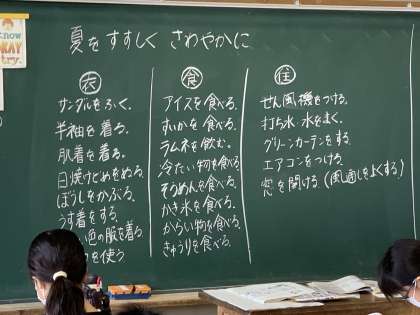 know
OKAY
try.
夏をすずしく さわやかに
衣
サンダルをはく。
半袖を着る。
肌着を着る。
日焼けどめをぬる。
ぼうしをかぶる。
うす着をする。
い色の服を着る
を使う
食
アイスを食べる。
すいかを食べる。
ラムネを飲む。
冷たい物を食べる。
そうめんを食べる。
かき氷を食べる。
からい物を食べる。
きゅうりを食べる。
住
せん風機をつける。
打ち水 水をまく。
グリーンカーテンをする。
エアコンをつける。
窓を開ける (風通しをよくする)